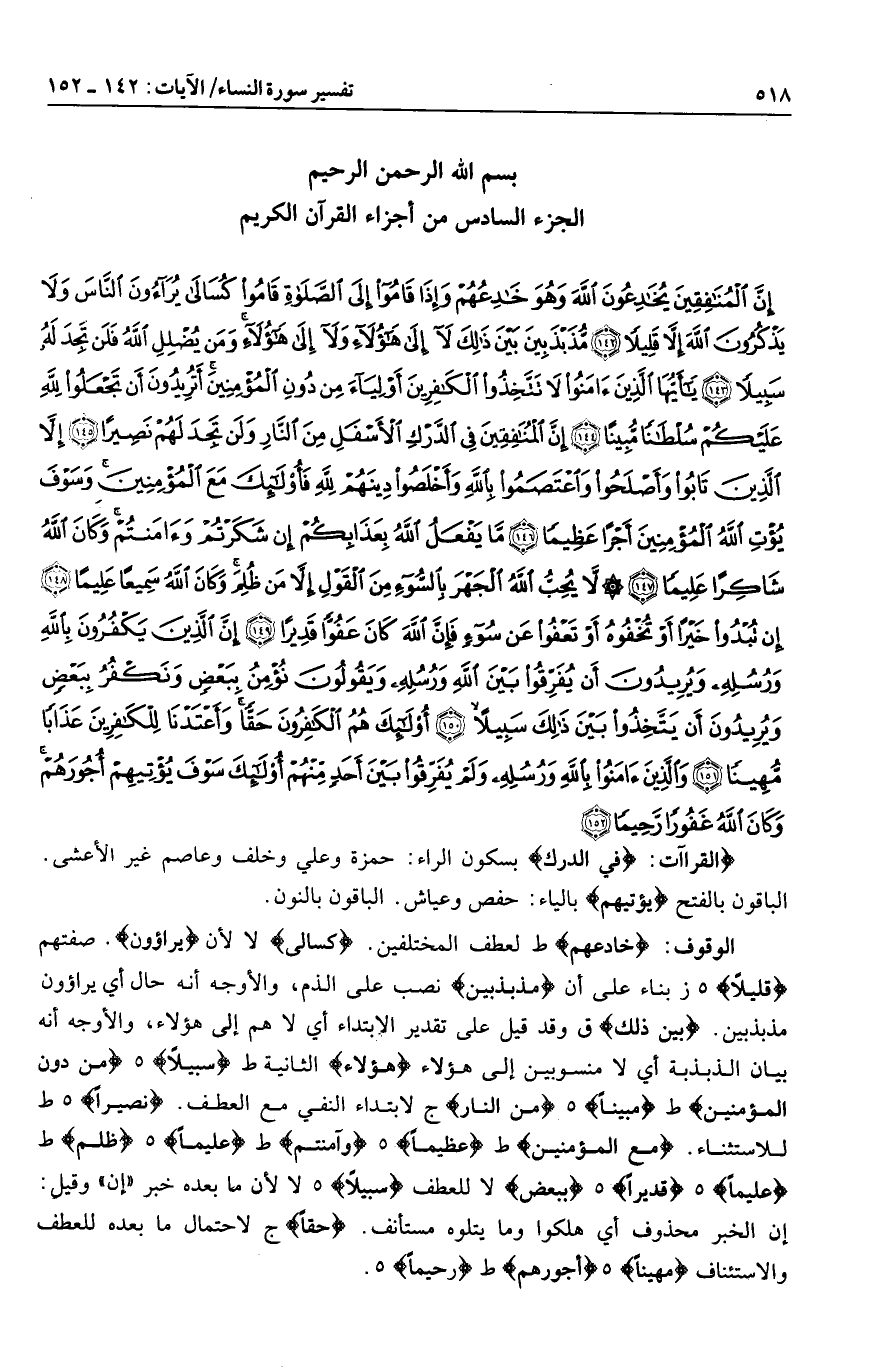 ٥١٨ تفسير سورة النساء/ الآيات: ١٤٢ ـ ١٥٢
بسم الله الرحمن الرحيم
الجزء السادس من أجزاء القرآن الكريم
إِنَّ ٱلْمُنَٰفِقِينَ يُخَٰدِعُونَ ٱللَّهَ وَهُوَ خَٰدِعُهُمْ وَإِذَا قَامُوٓا۟ إِلَى ٱلصَّلَوٰةِ قَامُوا۟ كُسَالَىٰ يُرَآءُونَ ٱلنَّاسَ وَلَا
يَذْكُرُونَ ٱللَّهَ إِلَّا قَلِيلًا ﴿١٤٢﴾ مُّذَبْذَبِينَ بَيْنَ ذَٰلِكَ لَآ إِلَىٰ هَٰٓؤُلَآءِ وَلَآ إِلَىٰ هَٰٓؤُلَآءِ ۚ وَمَن يُضْلِلِ ٱللَّهُ فَلَن تَجِدَ لَهُۥ
سَبِيلًا ﴿١٤٣﴾ يَٰٓأَيُّهَا ٱلَّذِينَ ءَامَنُوا۟ لَا تَتَّخِذُوا۟ ٱلْكَٰفِرِينَ أَوْلِيَآءَ مِن دُونِ ٱلْمُؤْمِنِينَ ۚ أَتُرِيدُونَ أَن تَجْعَلُوا۟ لِلَّهِ
عَلَيْكُمْ سُلْطَٰنًا مُّبِينًا ﴿١٤٤﴾ إِنَّ ٱلْمُنَٰفِقِينَ فِى ٱلدَّرْكِ ٱلْأَسْفَلِ مِنَ ٱلنَّارِ وَلَن تَجِدَ لَهُمْ نَصِيرًا ﴿١٤٥﴾ إِلَّا
ٱلَّذِينَ تَابُوا۟ وَأَصْلَحُوا۟ وَٱعْتَصَمُوا۟ بِٱللَّهِ وَأَخْلَصُوا۟ دِينَهُمْ لِلَّهِ فَأُو۟لَٰٓئِكَ مَعَ ٱلْمُؤْمِنِينَ ۖ وَسَوْفَ
يُؤْتِ ٱللَّهُ ٱلْمُؤْمِنِينَ أَجْرًا عَظِيمًا ﴿١٤٦﴾ مَّا يَفْعَلُ ٱللَّهُ بِعَذَابِكُمْ إِن شَكَرْتُمْ وَءَامَنتُمْ ۚ وَكَانَ ٱللَّهُ
شَاكِرًا عَلِيمًا ﴿١٤٧﴾ ۞ لَّا يُحِبُّ ٱللَّهُ ٱلْجَهْرَ بِٱلسُّوٓءِ مِنَ ٱلْقَوْلِ إِلَّا مَن ظُلِمَ ۚ وَكَانَ ٱللَّهُ سَمِيعًا عَلِيمًا ﴿١٤٨﴾
إِن تُبْدُوا۟ خَيْرًا أَوْ تُخْفُوهُ أَوْ تَعْفُوا۟ عَن سُوٓءٍ فَإِنَّ ٱللَّهَ كَانَ عَفُوًّا قَدِيرًا ﴿١٤٩﴾ إِنَّ ٱلَّذِينَ يَكْفُرُونَ بِٱللَّهِ
وَرُسُلِهِۦ وَيُرِيدُونَ أَن يُفَرِّقُوا۟ بَيْنَ ٱللَّهِ وَرُسُلِهِۦ وَيَقُولُونَ نُؤْمِنُ بِبَعْضٍ وَنَكْفُرُ بِبَعْضٍ
وَيُرِيدُونَ أَن يَتَّخِذُوا۟ بَيْنَ ذَٰلِكَ سَبِيلًا ﴿١٥٠﴾ أُو۟لَٰٓئِكَ هُمُ ٱلْكَٰفِرُونَ حَقًّا ۚ وَأَعْتَدْنَا لِلْكَٰفِرِينَ عَذَابًا
مُّهِينًا ﴿١٥١﴾ وَٱلَّذِينَ ءَامَنُوا۟ بِٱللَّهِ وَرُسُلِهِۦ وَلَمْ يُفَرِّقُوا۟ بَيْنَ أَحَدٍ مِّنْهُمْ أُو۟لَٰٓئِكَ سَوْفَ يُؤْتِيهِمْ أُجُورَهُمْ ۗ
وَكَانَ ٱللَّهُ غَفُورًا رَّحِيمًا ﴿١٥٢﴾
﴿القراآت: ﴿في الدرك﴾ بسكون الراء: حمزة وعلي وخلف وعاصم غير الأعشى.
الباقون بالفتح ﴿يؤتيهم﴾ بالياء: حفص وعياش. الباقون بالنون.
الوقوف: ﴿خادعهم﴾ ط لعطف المختلفين. ﴿كسالى﴾ لا لأن ﴿يراؤون﴾. صفتهم
﴿قليلاً﴾ ٥ ز بناء على أن ﴿مذبذبين﴾ نصب على الذم، والأوجه أنه حال أي يراؤون
مذبذبين. ﴿بين ذلك﴾ ق وقد قيل على تقدير الابتداء أي لا هم إلى هؤلاء، والأوجه أنه
بيان الذبذبة أي لا منسوبين إلى هؤلاء ﴿هؤلاء﴾ الثانية ط ﴿سبيلاً﴾ ٥ ﴿من دون
المؤمنين﴾ ط ﴿مبيناً﴾ ٥ ﴿من النار﴾ ج لابتداء النفي مع العطف. ﴿نصيراً﴾ ٥ ط
للاستثناء. ﴿مع المؤمنين﴾ ط ﴿عظيماً﴾ ٥ ﴿وآمنتم﴾ ط ﴿عليماً﴾ ٥ ﴿ظلم﴾ ط
﴿عليماً﴾ ٥ ﴿قديراً﴾ ٥ ﴿ببعض﴾ لا للعطف ﴿سبيلاً﴾ ٥ لا لأن ما بعده خبر «إن» وقيل:
إن الخبر محذوف أي هلكوا وما يتلوه مستأنف. ﴿حقاً﴾ ج لاحتمال ما بعده للعطف
والاستئناف ﴿مهيناً﴾ ٥ ﴿أجورهم﴾ ط ﴿رحيماً﴾ ٥.